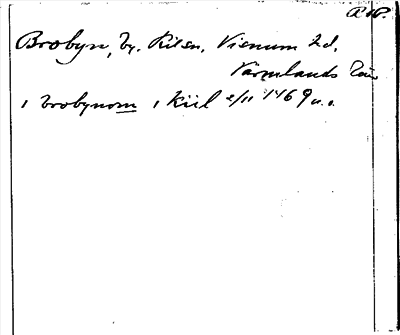 Brobyn, by. Kilsn, Visnum hd,
Värmlands län
i brobynom i Kiil 2/11 1469 u.